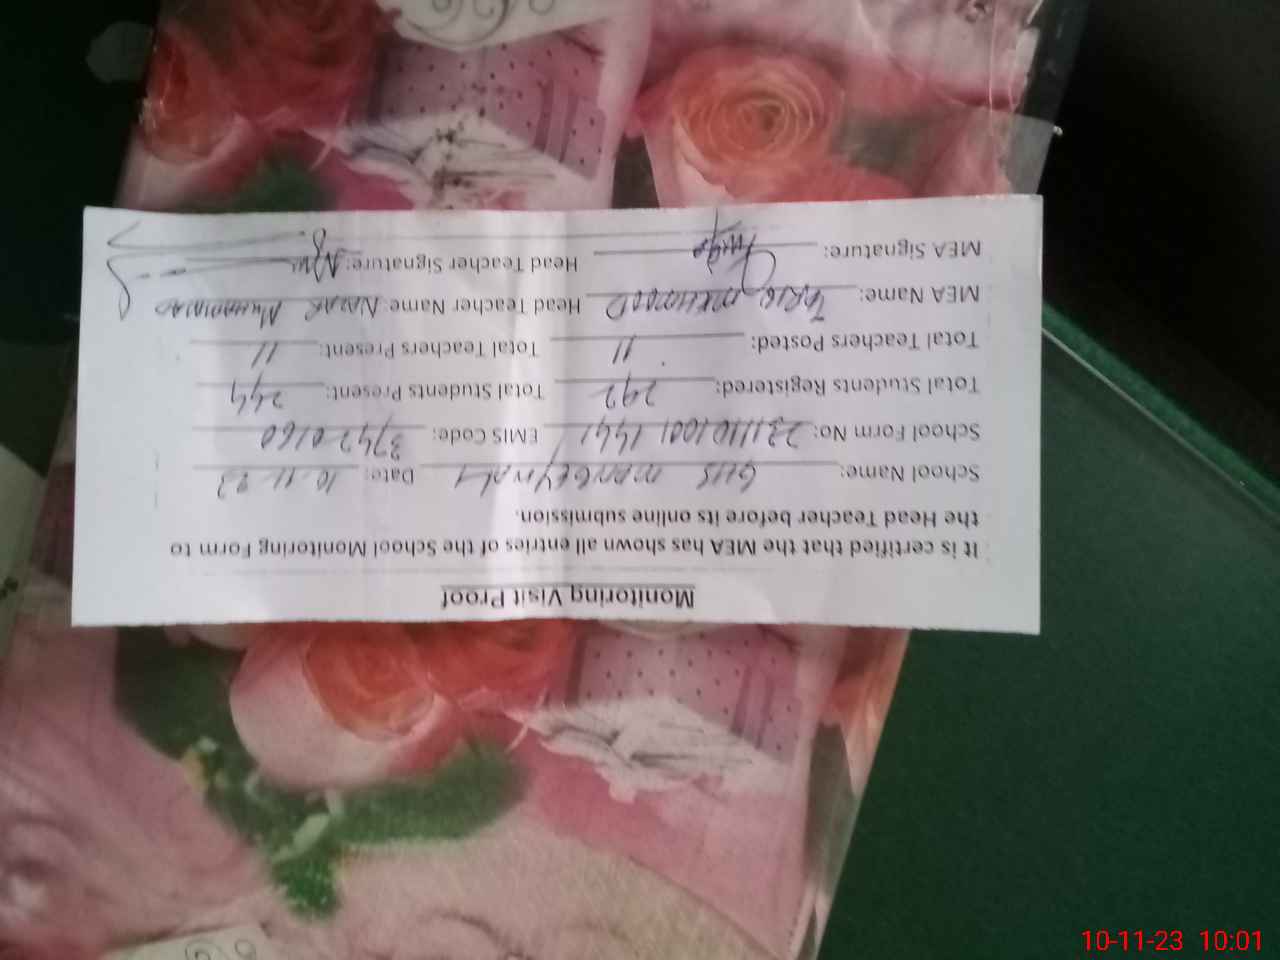 Monitoring Visit Proof
It is certified that the MEA has shown all entries of the School Monitoring Form to
the Head Teacher before its online submission.
School Name: GHS Date: 10-11-23
School Form No: EMIS Code: 37420160
Total Students Registered: 292 Total Students Present: 244
Total Teachers Posted: 11 Total Teachers Present: 11
MEA Name: TARIQ MEHMOOD Head Teacher Name: MUHAMMAD
MEA Signature: Head Teacher Signature:
10-11-23 10:01